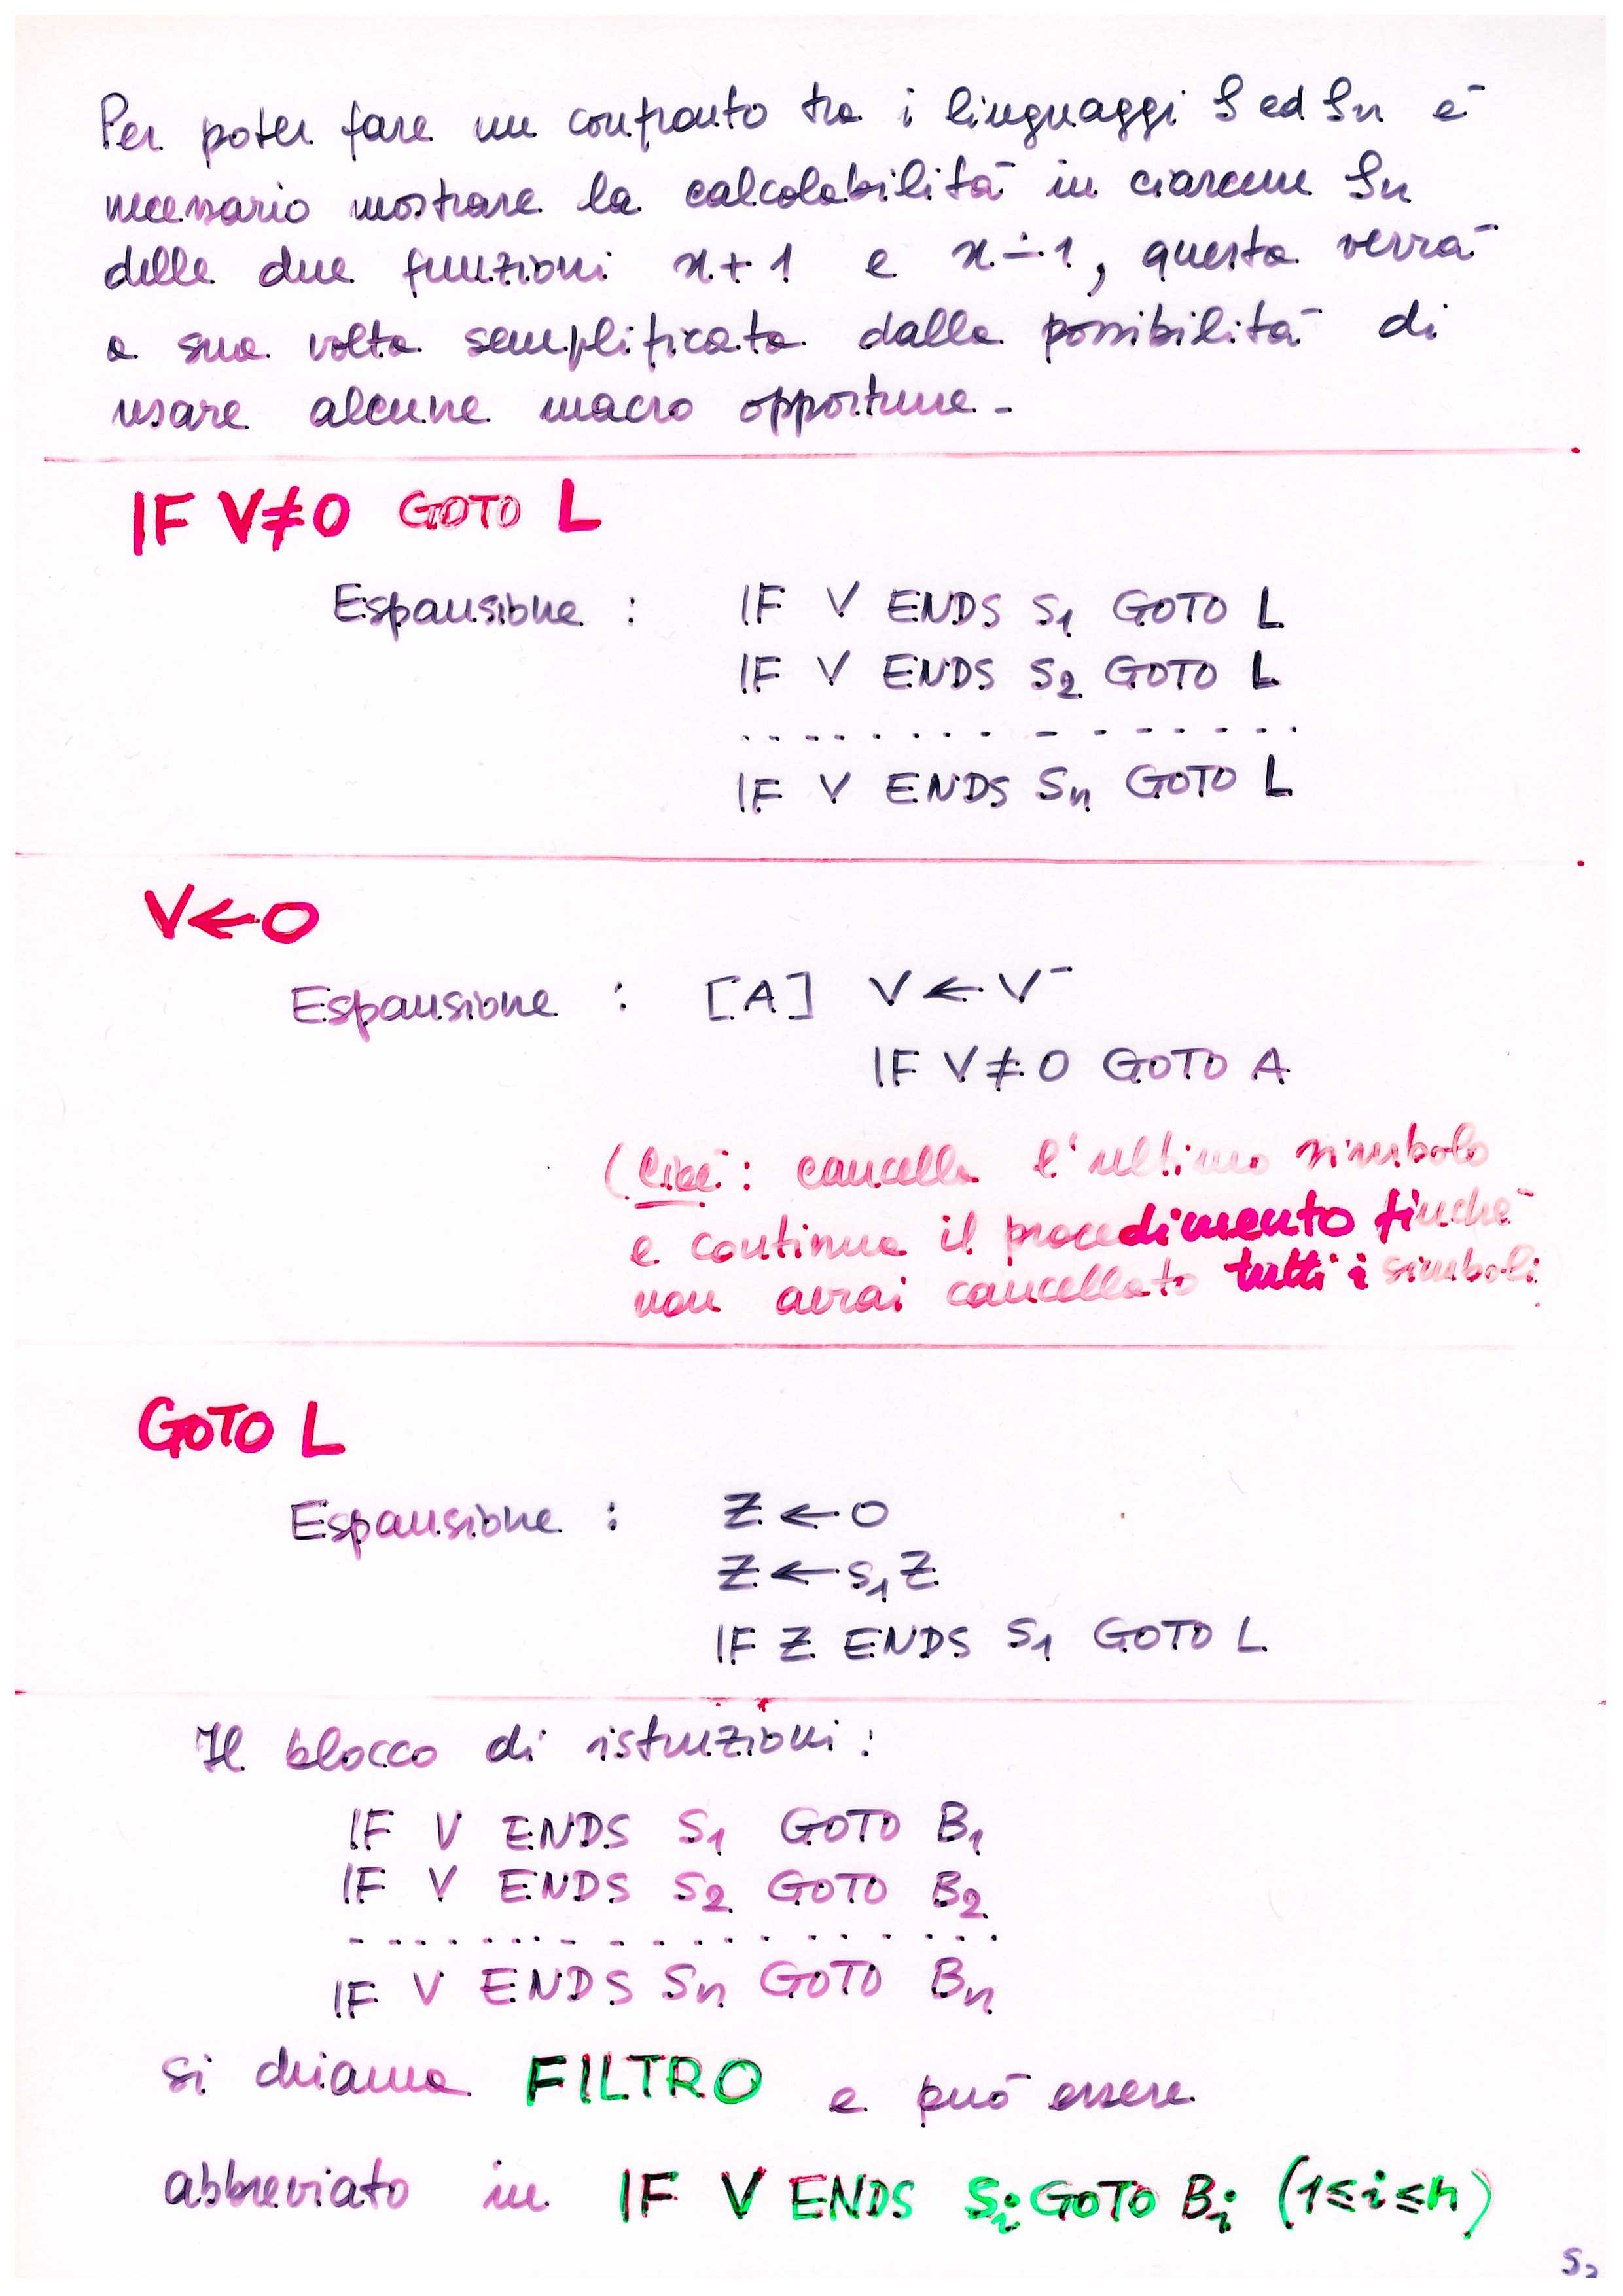 Per poter fare un confronto tra i linguaggi S ed Sn è
necessario mostrare la calcolabilità in ciascun Sn
delle due funzioni x+1 e x∸1, questa verrà
a sua volta semplificata dalla possibilità di
usare alcune macro opportune -
IF V≠0 GOTO L
Espansione : IF V ENDS S₁ GOTO L
IF V ENDS S₂ GOTO L
. . . . . . . . . . . . . . . .
IF V ENDS Sₙ GOTO L
V←0
Espansione : [A] V←V⁻
IF V≠0 GOTO A
(Cioè: cancella l'ultimo simbolo
e continua il procedimento finchè
non avrai cancellato tutti i simboli
GOTO L
Espansione : Z←0
Z←S₁Z
IF Z ENDS S₁ GOTO L
Il blocco di istruzioni :
IF V ENDS S₁ GOTO B₁
IF V ENDS S₂ GOTO B₂
. . . . . . . . . . . . . . . . . .
IF V ENDS Sₙ GOTO Bₙ
si chiama FILTRO e può essere
abbreviato in IF V ENDS Sᵢ GOTO Bᵢ (1≤i≤n)
S₂